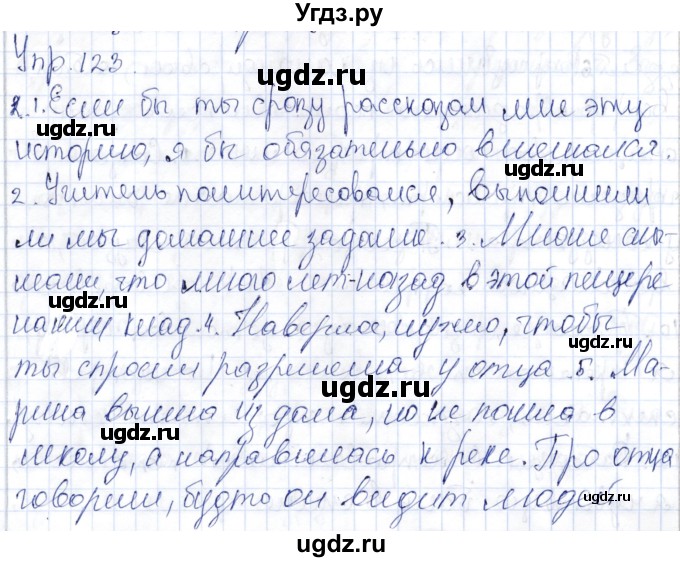 Угдз.ру
Упр. 123.
2. 1. Если бы ты сразу рассказал мне эту
историю, я бы обязательно вмешался.
2. Учитель поинтересовался, выполнили
ли мы домашнее задание. 3. Многие слы-
шали, что много лет назад в этой пещере
нашли клад. 4. Наверное, нужно, чтобы
ты спросил разрешения у отца. 5. Ма-
рина вышла из дома, но не пошла в
школу, а направилась к реке. Про отца
говорили, будто он видит людей
ugdz.ru
ugdz.ru
ugdz.ru
ugdz.ru
ugdz.ru
ugdz.ru
ugdz.ru
ugdz.ru
ugdz.ru
ugdz.ru
ugdz.ru
ugdz.ru
ugdz.ru